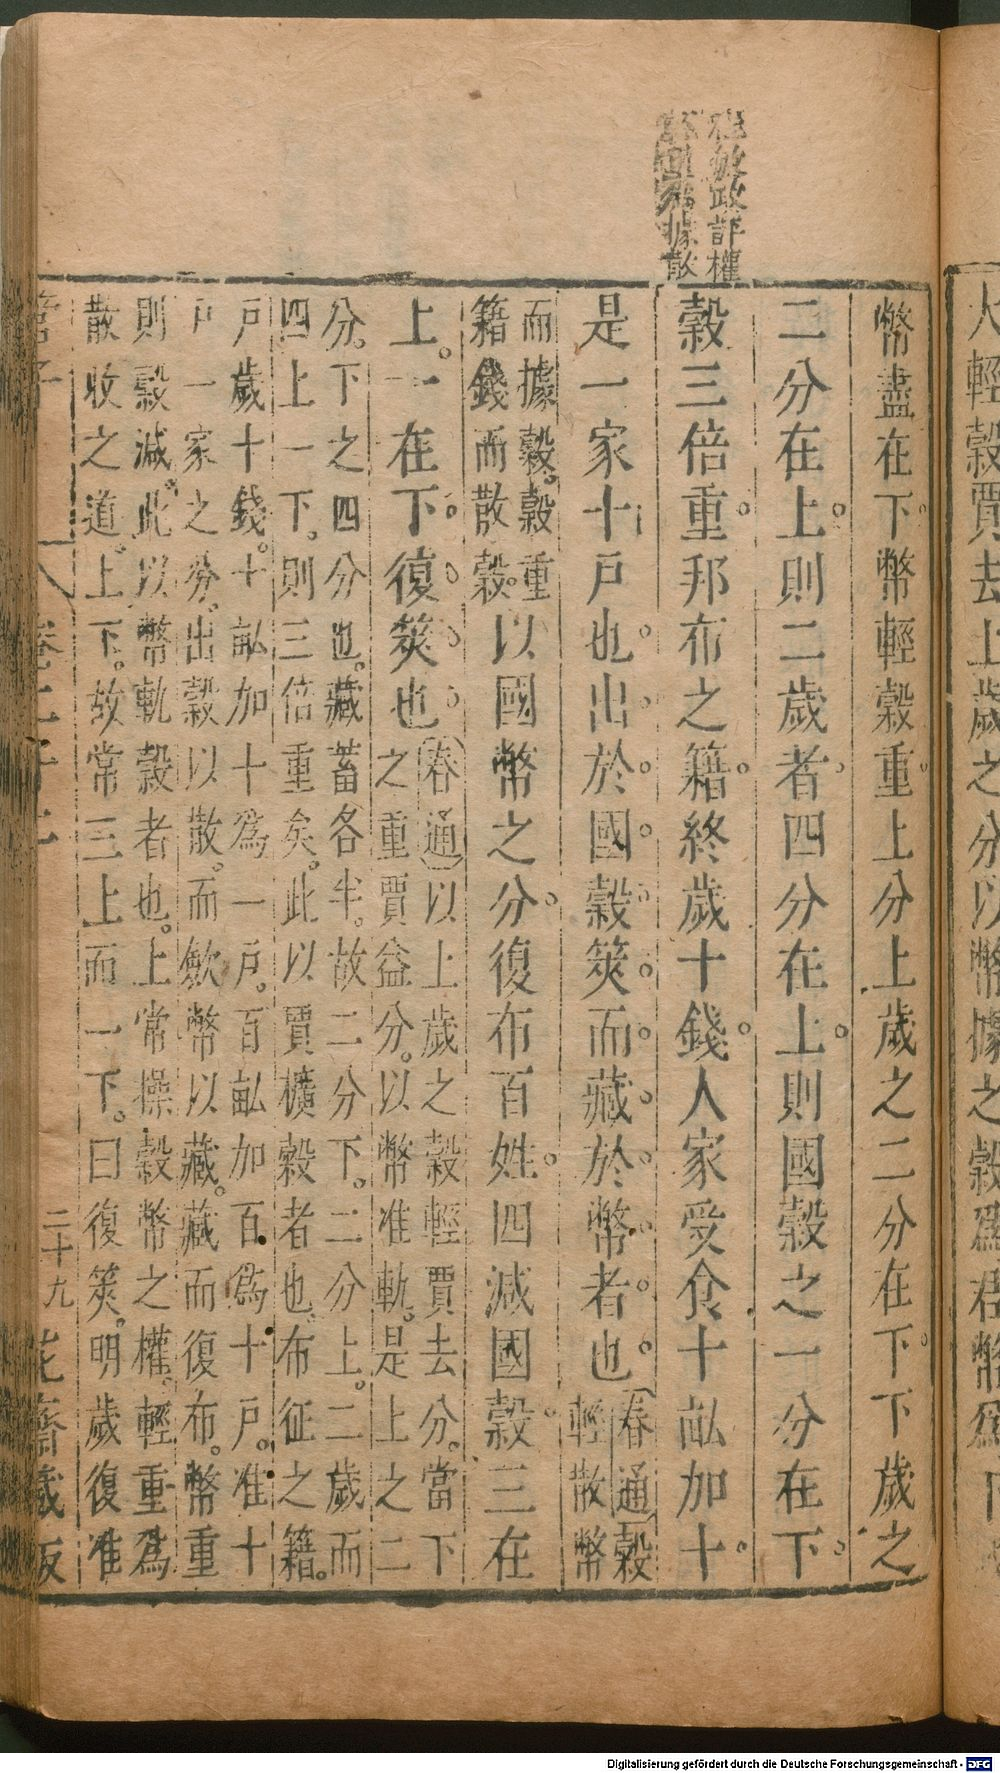 大輕穀賈去上歲之分以幣據之穀爲君幣爲下
程敏政評權
據散
幣盡在下幣輕穀重上分上歲之二分在下下歲之
二分在上則二歲者四分在上則國穀之一分在下
穀三倍重邦布之籍終歲十錢人家受食十畝加十
是一家十戶也出於國穀筴而藏於幣者也春通穀
輕散幣
而據穀穀重
籍錢而散穀以國幣之分復布百姓四減國穀三在
上一在下復筴也春通以上歲之穀輕賈去分當下
之重賈益分以幣准軌是上之二
分下之四分也藏蓄各半故二分下二分上二歲而
四上一下則三倍重矣此以賈櫎穀者也布征之籍
戶歲十錢十畝加十爲一戶百畝加百爲十戶准十
戶一家之分出穀以散而斂幣以藏藏而復布幣重
則穀減此以幣軌穀者也上常操穀幣之權輕重爲
散收之道上下故常三上而一下曰復筴明歲復准
管子 卷二十二 二十九 花齋藏板
Digitalisierung gefördert durch die Deutsche Forschungsgemeinschaft - DFG